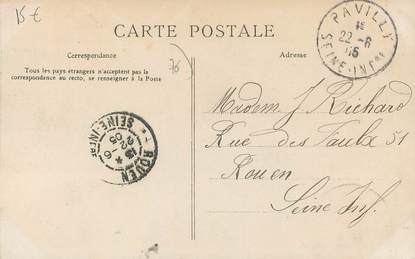 15€
CARTE POSTALE
Correspondence
Adresse
Tous les pays étrangers n'acceptent pas la
correspondance au recto, se renseigner à la Poste
76
PAVILLY
22-6
05
SEINE-INFRE
ROUEN
22-6
05
SEINE-INFRE
Madem J. Richard
Rue des Faulx 51
Rouen
Seine Inf.